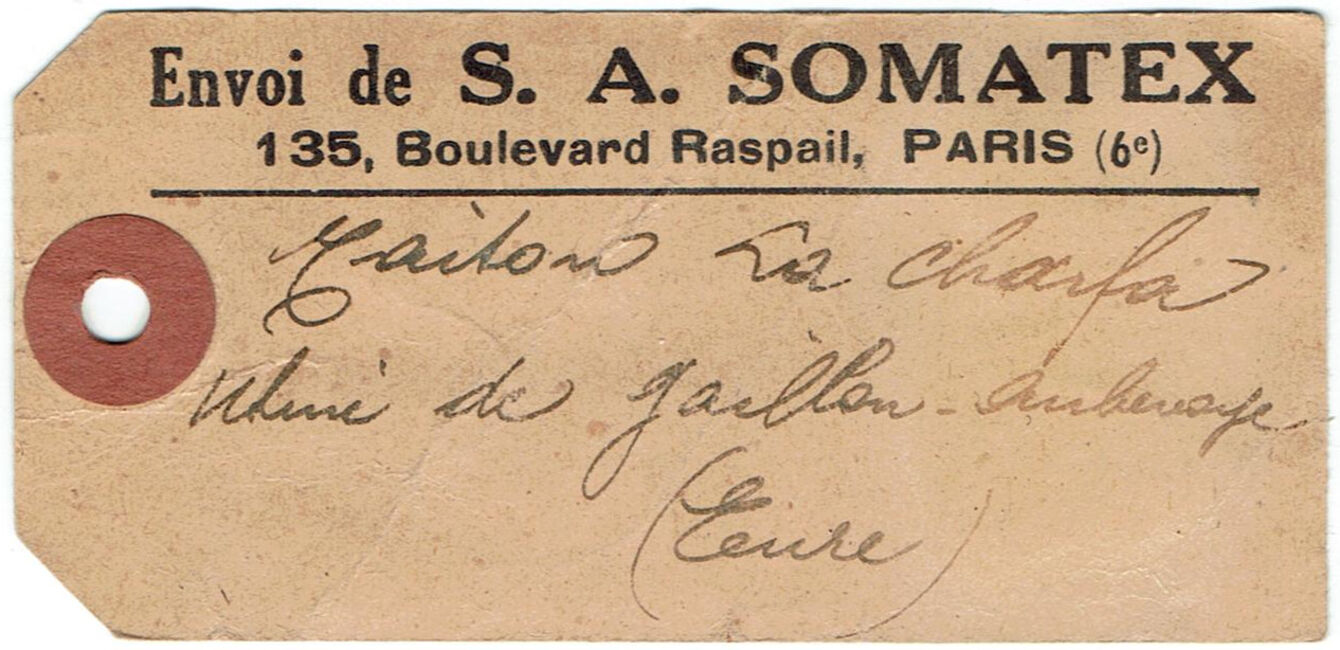 Envoi de S. A. SOMATEX
135, Boulevard Raspail, PARIS (6e)
La Charfa
de Gaillon - Aubevoye
(Eure)